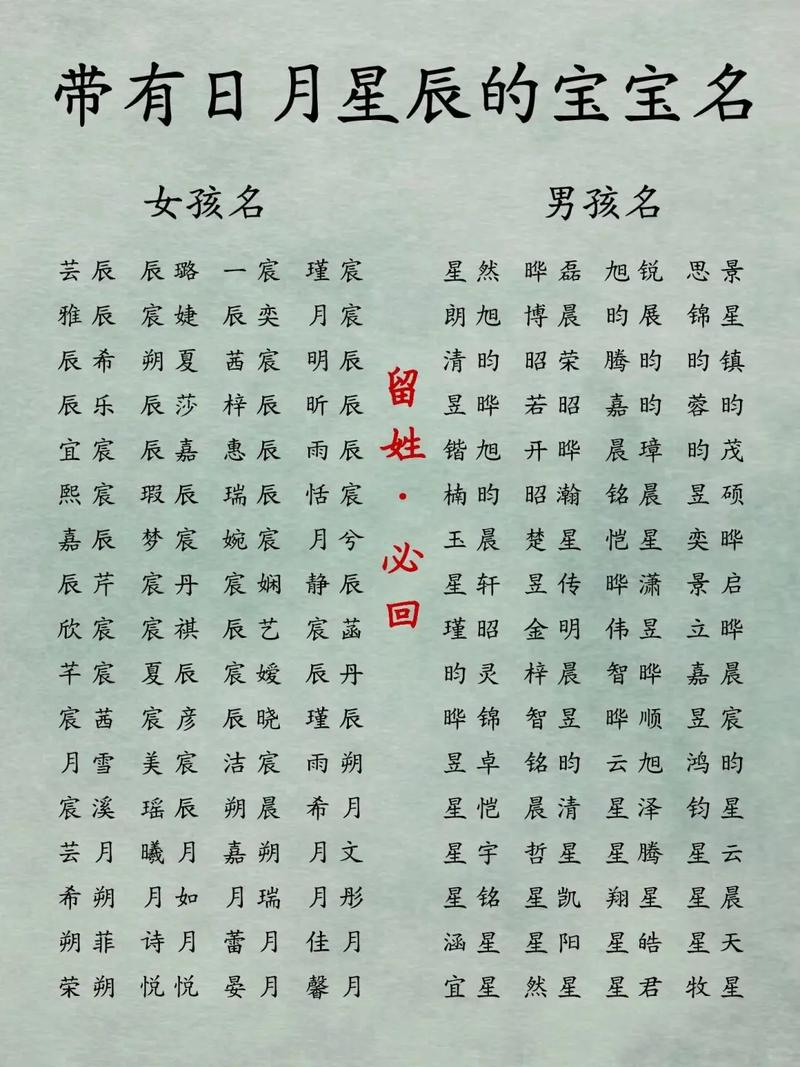 带有日月星辰的宝宝名
女孩名
芸辰 辰璐 一宸 瑾宸
雅辰 宸婕 辰奕 月宸
辰希 朔夏 茜宸 明辰
辰乐 辰莎 梓辰 昕辰
宜宸 辰嘉 惠辰 雨辰
熙宸 瑕辰 瑞辰 恬宸
嘉辰 梦宸 婉宸 月兮
辰芹 宸丹 宸娴 静辰
欣宸 宸祺 辰艺 宸菡
芊宸 夏辰 宸嫒 辰丹
宸茜 宸彦 辰晓 瑾辰
月雪 美宸 洁宸 雨朔
宸溪 瑶辰 朔晨 希月
芸月 曦月 嘉朔 月文
希朔 月如 月瑞 月彤
朔菲 诗月 蕾月 佳月
荣朔 悦悦 晏月 馨月
留姓·必回
男孩名
星然 晔磊 旭锐 思景
朗旭 博晨 昀展 锦星
清昀 昭荣 腾昀 昀镇
昱晔 若昭 嘉昀 蓉昀
锴旭 开晔 晨璋 昀茂
楠昀 昭瀚 铭晨 昱硕
玉晨 楚星 恺星 奕晔
星轩 昱传 晔潇 景启
瑾昭 金明 伟昱 立晔
昀灵 梓晨 智晔 嘉晨
晔锦 智昱 晔顺 昱宸
昱卓 铭昀 云旭 鸿昀
星恺 晨清 星泽 钧星
星宇 哲星 星腾 星云
星铭 星凯 翔星 星晨
涵星 星阳 星皓 星天
宜星 然星 星君 牧星